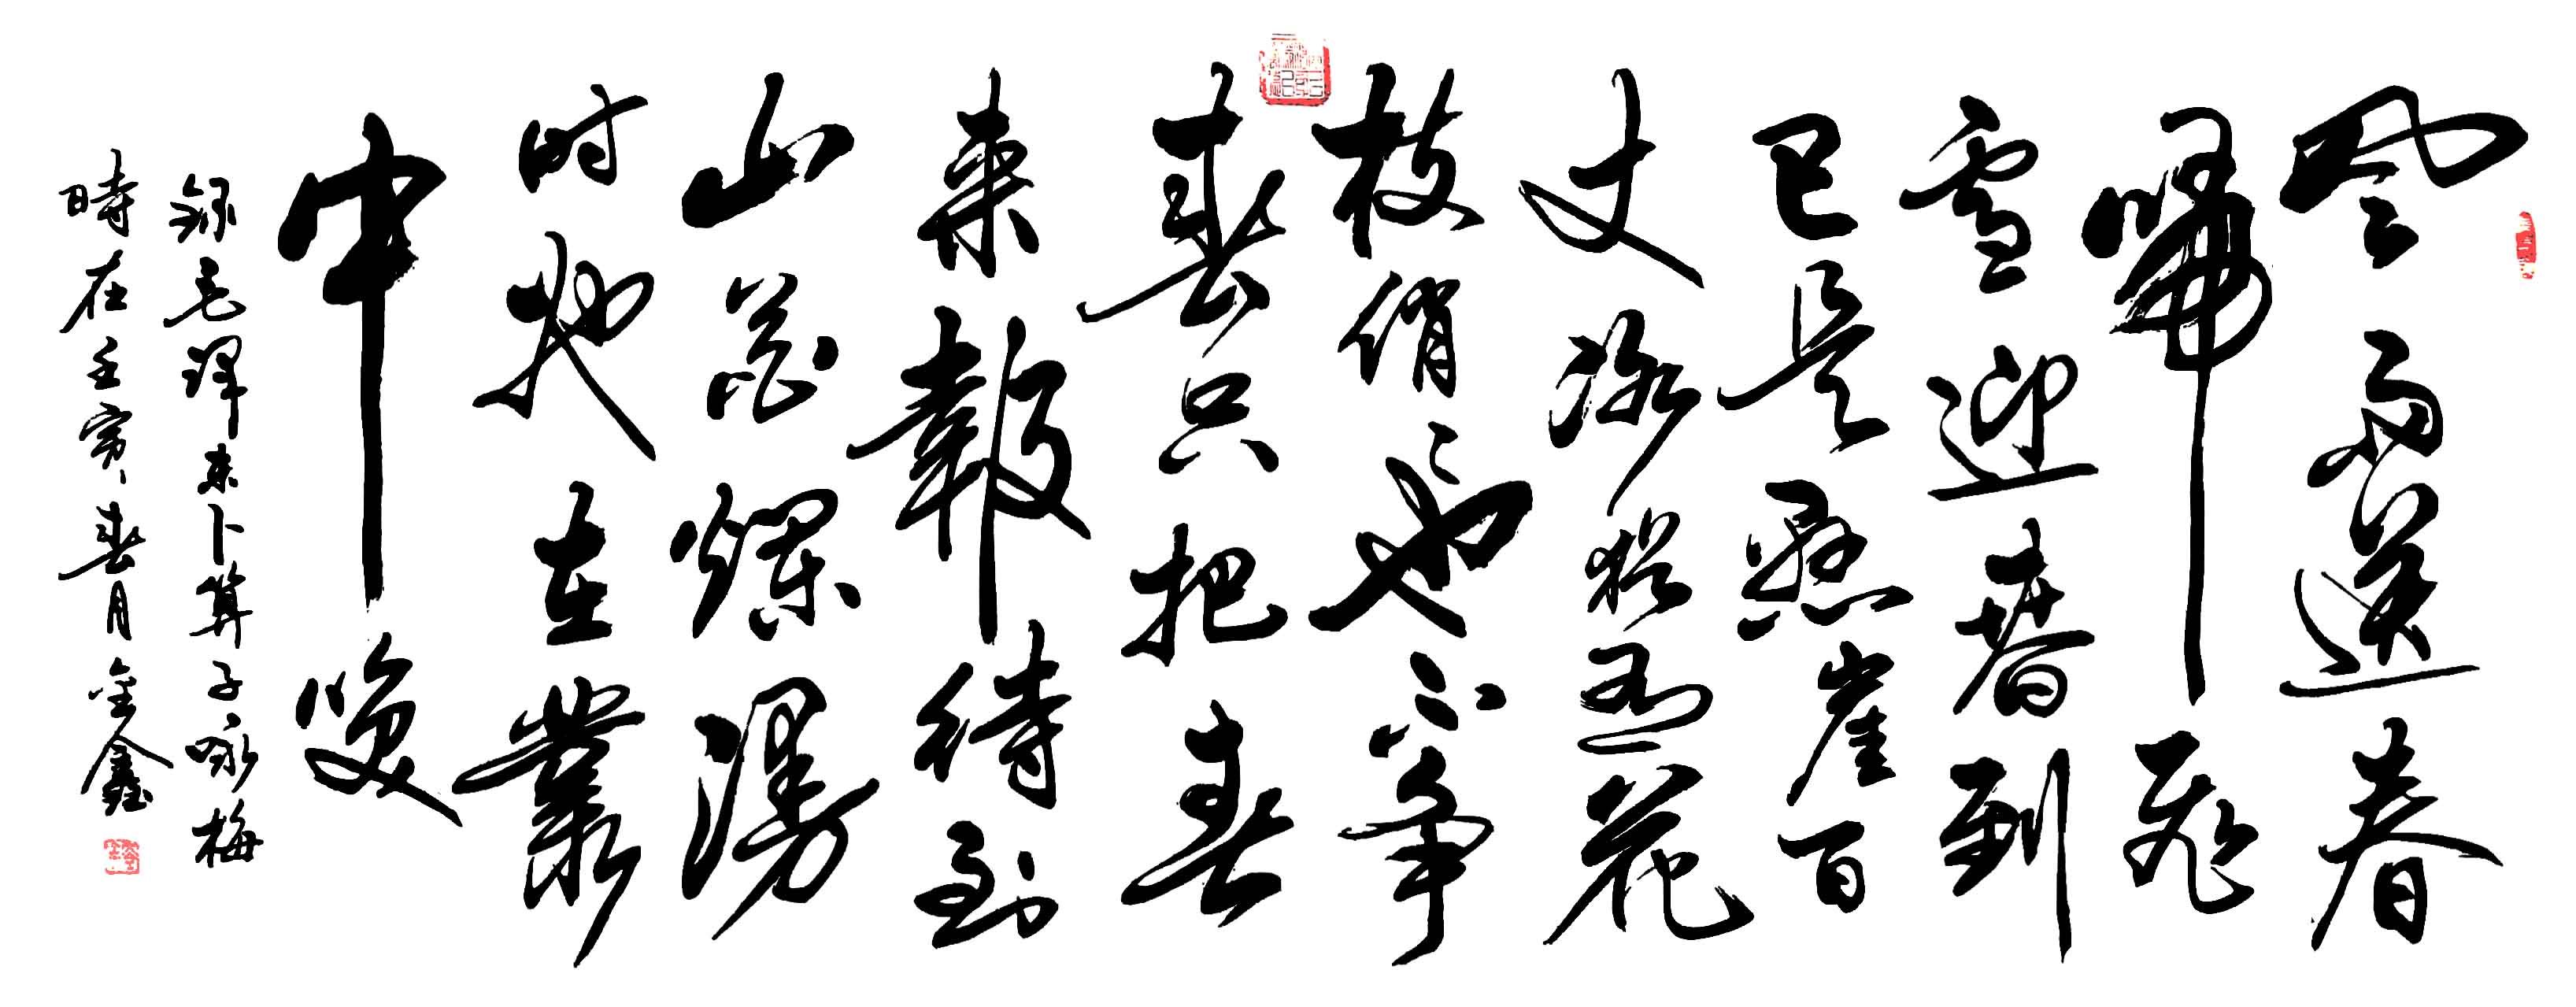 風雨送春
歸飛
雪迎春到
已是懸崖百
丈冰猶有花
枝俏也不爭
春只把春
來報待到
山花爛漫
时她在叢
中咲
録毛澤東卜算子咏梅
時在壬寅春月金鑫